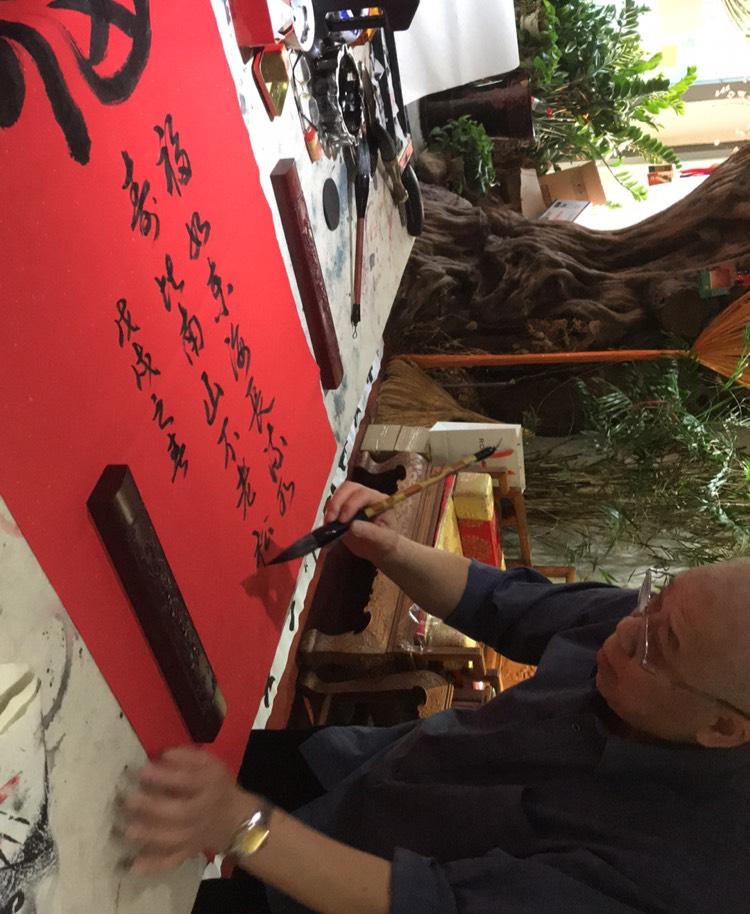 福如东海长流水
寿比南山不老松
戊戌之春